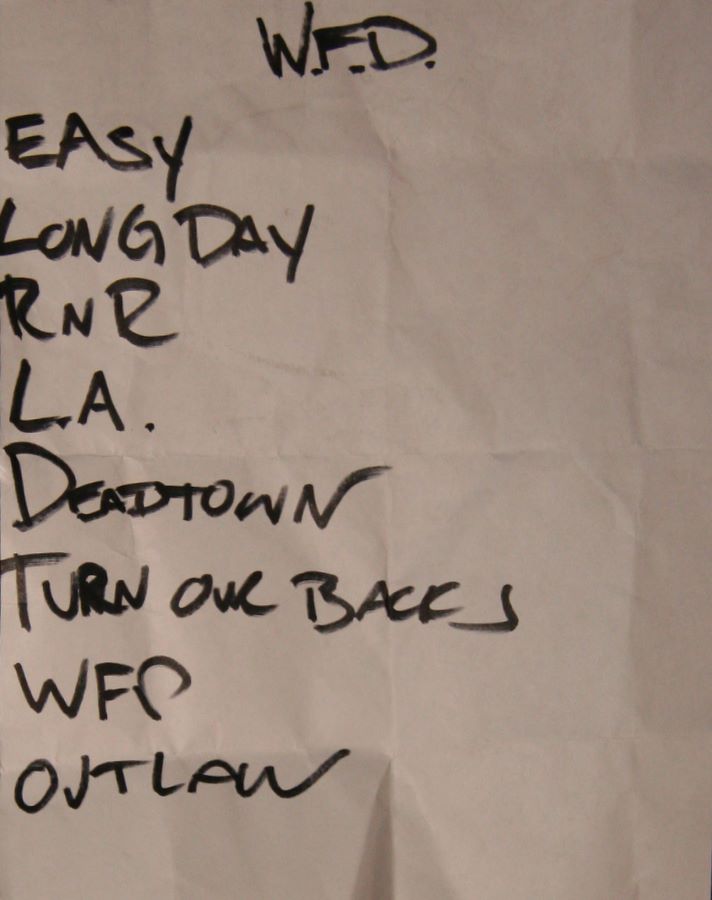 W.F.D.
EASY
LONG DAY
RNR
L.A.
DEADTOWN
TURN OUR BACKS
WFD
OUTLAW